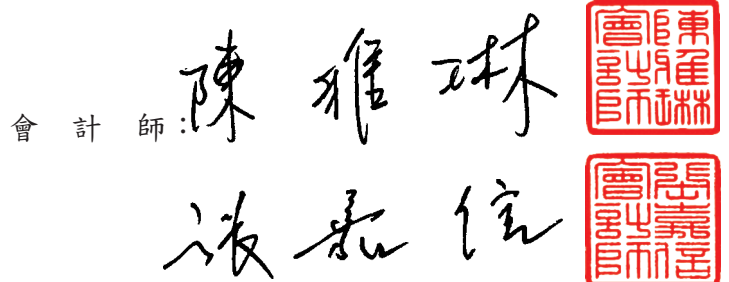 會計師：陳雅琳
陳雅琳
會計師
張嘉信
張嘉信
會計師